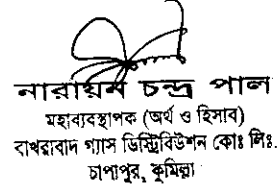 নারায়ন চন্দ্র পাল
মহাব্যবস্থাপক (অর্থ ও হিসাব)
বাখরাবাদ গ্যাস ডিস্ট্রিবিউশন কোঃ লিঃ.
চাপাপুর, কুমিল্লা